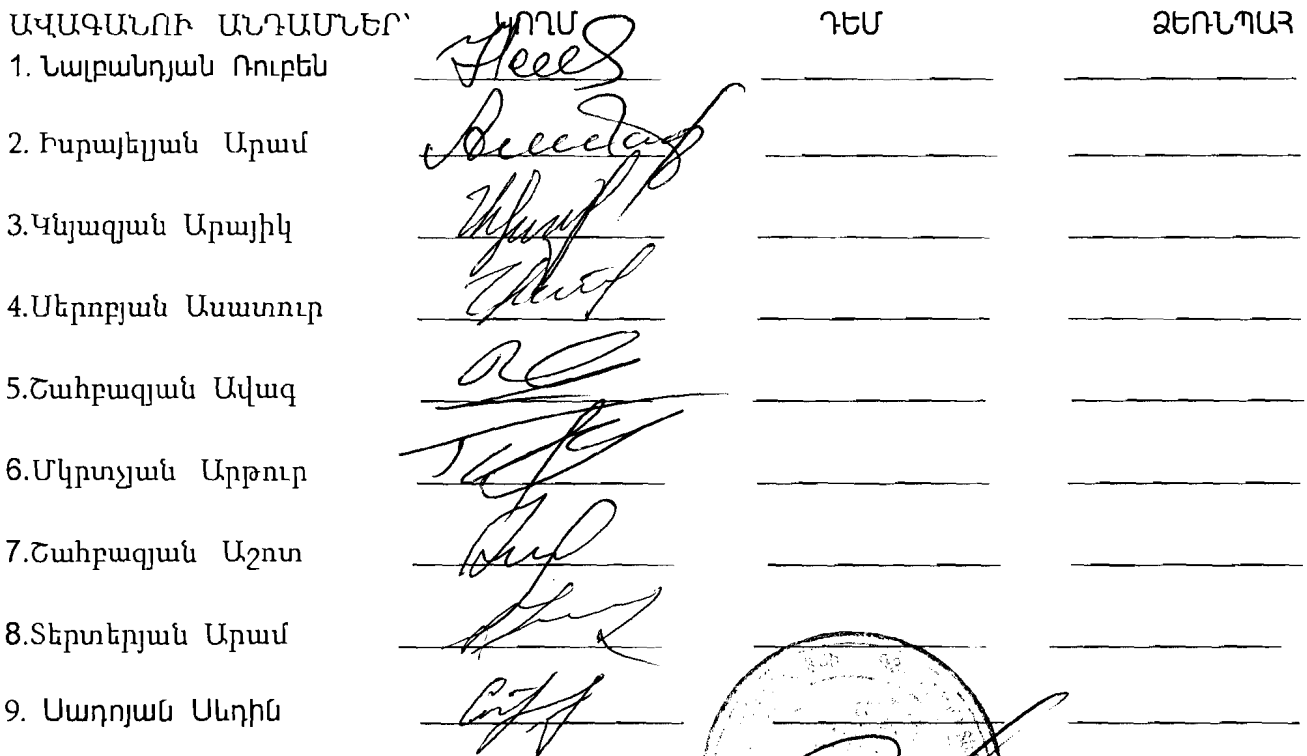 ԱՎԱԳԱՆՈՒ ԱՆԴԱՄՆԵՐ՝ ԿՈՂՄ ԴԵՄ ՁԵՌՆՊԱՀ
1. Նալբանդյան Ռուբեն
2. Իսրայելյան Արամ
3.Կնյազյան Արայիկ
4.Սերոբյան Ասատուր
5.Շահբազյան Ավագ
6.Մկրտչյան Արթուր
7.Շահբազյան Աշոտ
8.Տերտերյան Արամ
9. Սադոյան Սևդին